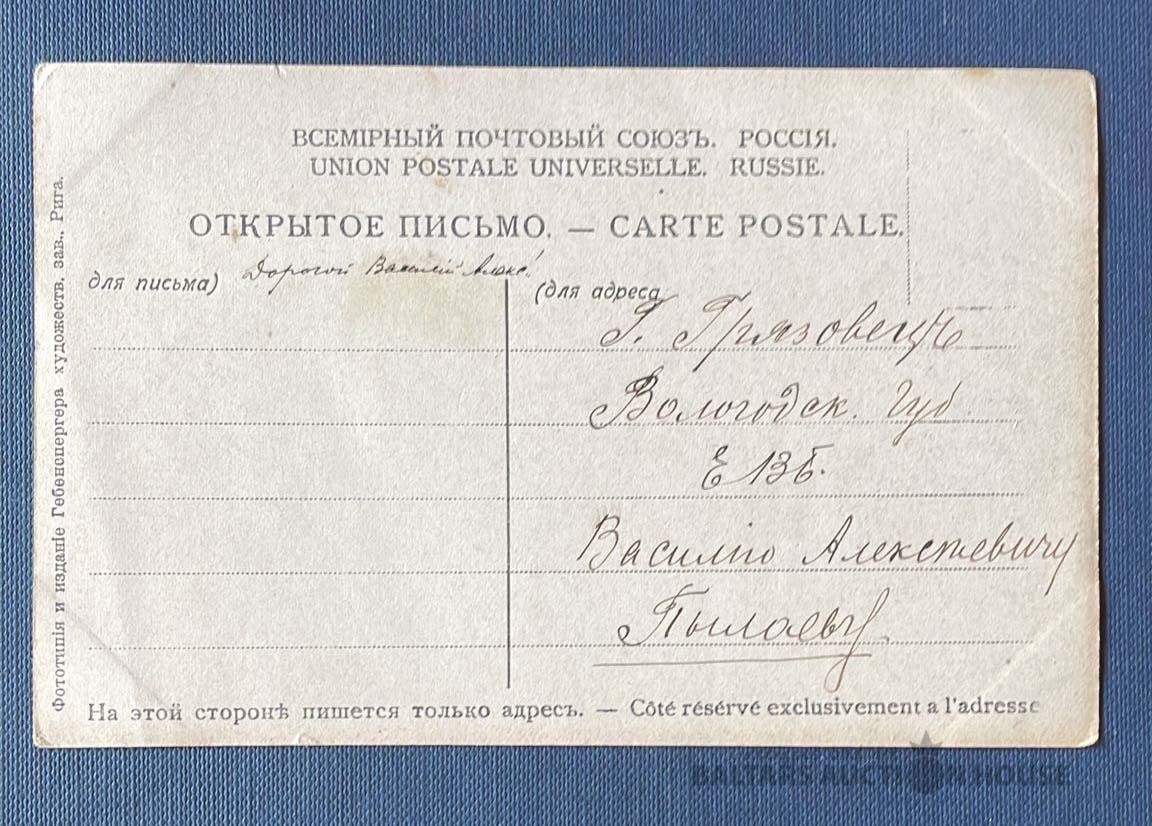 ВСЕМІРНЫЙ ПОЧТОВЫЙ СОЮЗЪ. РОССІЯ.
UNION POSTALE UNIVERSELLE. RUSSIE.
ОТКРЫТОЕ ПИСЬМО. — CARTE POSTALE.
для письма) Дорогой Василій Алекс!
(для адреса
Г. Грязовецъ
Вологодск. Губ
Е В Б.
Василію Алексѣевичу
Пылаеву
На этой сторонѣ пишется только адресъ. — Côté résérvé exclusivement a l'adresse
Фототипія и изданіе Гебенспергера художеств. зав., Рига.
BALTARS AUCTION HOUSE